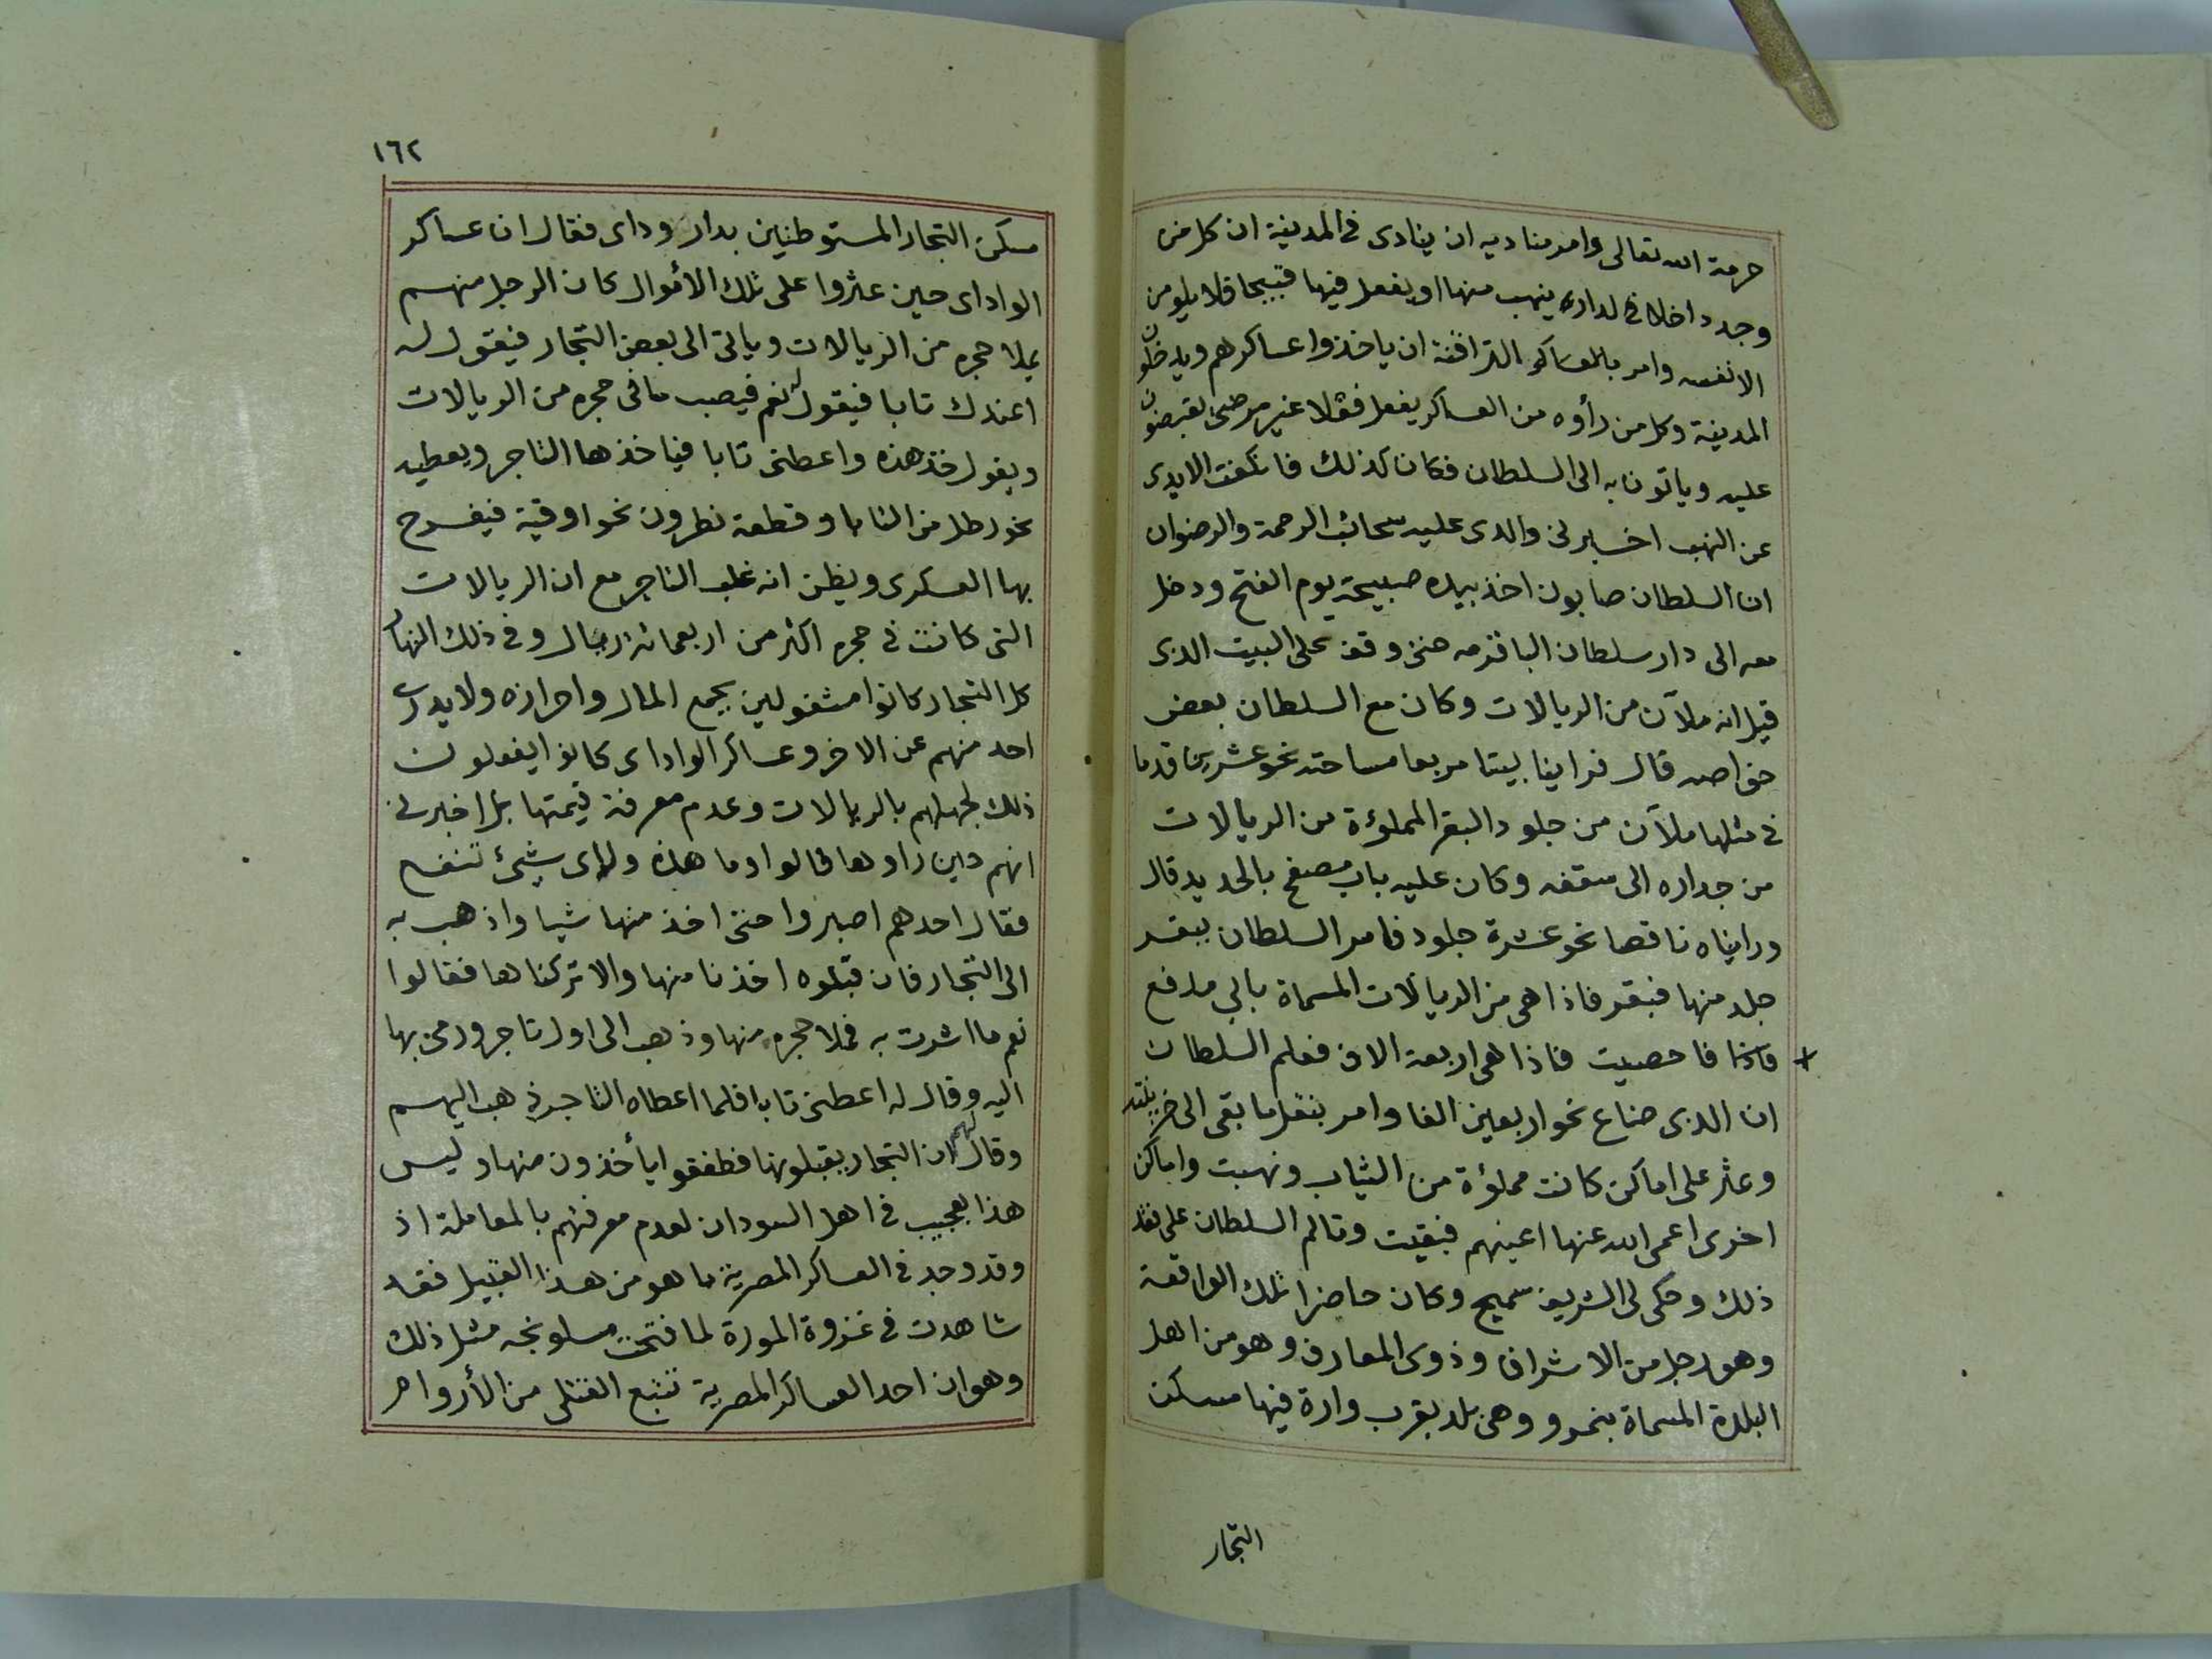 حرمة الله تعالى وامر مناديه ان ينادى فى المدينة ان كل من
وجد داخلا فى لدار ينهب منها او يفعل فيها قبيحا فلا يلومن
الا نفسه وامر بالعساكر التراقنة ان ياخذوا عساكرهم ويدخلون
المدينة وكل من رأوه من العساكر يفعل فعلا غير مرضى يقبضون
عليه وياتون به الى السلطان فكان كذلك فانكفت الايدى
عن النهب اخبرنى والدى عليه سحائب الرحمة والرضوان
ان السلطان صابون اخذ بيده صبيحة يوم الفتح ودخل
معه الى دار سلطان الباقرمه حتى وقف على البيت الذى
قيل انه ملآن من الريالات وكان مع السلطان بعض
خواصه قال فراينا بيتا مربعا مساحته نحو عشرين قدما
فى مثلها ملآن من جلود البقر المملؤة من الريالات
من جداره الى سقفه وكان عليه باب مصفح بالحديد قال
ورايناه ناقصا نحو عشرة جلود فامر السلطان ببقر
جلد منها فبقر فاذا هى من الريالات المسماة بابى مدفع
فاحصيت فاذا هى اربعة الاف فعلم السلطان
ان الذى ضاع نحو اربعين الفا وامر بنقل ما بقى الى خزينته
وعثر على اماكن كانت مملؤة من الثياب ونهبت واماكن
اخرى اعمى الله عنها اعينهم فبقيت وتالم السلطان على فقد
ذلك وحكى لى الشريف سميح وكان حاضرا تلك الواقعة
وهو رجل من الاشراف وذوى المعارف وهو من اهل
البلدة المسماة بنمرو وهى بلد بقرب وارة فيها مسكن
التجار
١٦٢
مسكن التجار المستوطنين بدار وداى فقال ان عساكر
الواداى حين عثروا على تلك الاموال كان الرجل منهم
يملا حجره من الريالات وياتى الى بعض التجار فيقول له
اعندك تابا فيقول له نعم فيصب ما فى حجره من الريالات
ويقول خذ هذه واعطنى تابا فياخذها التاجر ويعطيه
نحو رطل من التابا وقطعة نطرون نحو اوقية فيفرح
بها العسكرى ويظن انه غلب التاجر مع ان الريالات
التى كانت فى حجره اكثر من اربعمائة ريال وفى ذلك النهار
كل التجار كانوا مشغولين بجمع المال واحرازه ولا يدرى
احد منهم عن الاخر وعساكر الواداى كانوا يفعلون
ذلك لجهلهم بالريالات وعدم معرفة قيمتها بل اخبرنى
انهم حين راوها قالوا وما هذه ولاى شيئ تنفع
فقال احدهم اصبروا حتى اخذ منها شيا واذهب به
الى التجار فان قبلوه اخذنا منها والا تركناها فقالوا
نعم ما اشرت به فملا حجره منها وذهب الى اول تاجر ورمى بها
اليه وقال له اعطنى تابا فلما اعطاه التاجر ذهب اليهم
وقال لهم ان التجار يقبلونها فطفقوا يأخذون منها وليس
هذا بعجيب فى اهل السودان لعدم معرفتهم بالمعاملة اذ
وقد وجد فى العساكر المصرية ما هو من هذا القبيل فقد
شاهدت فى غزوة المورة لما فتحت مسلونجه مثل ذلك
وهو ان احد العساكر المصرية تتبع القتلى من الأروام